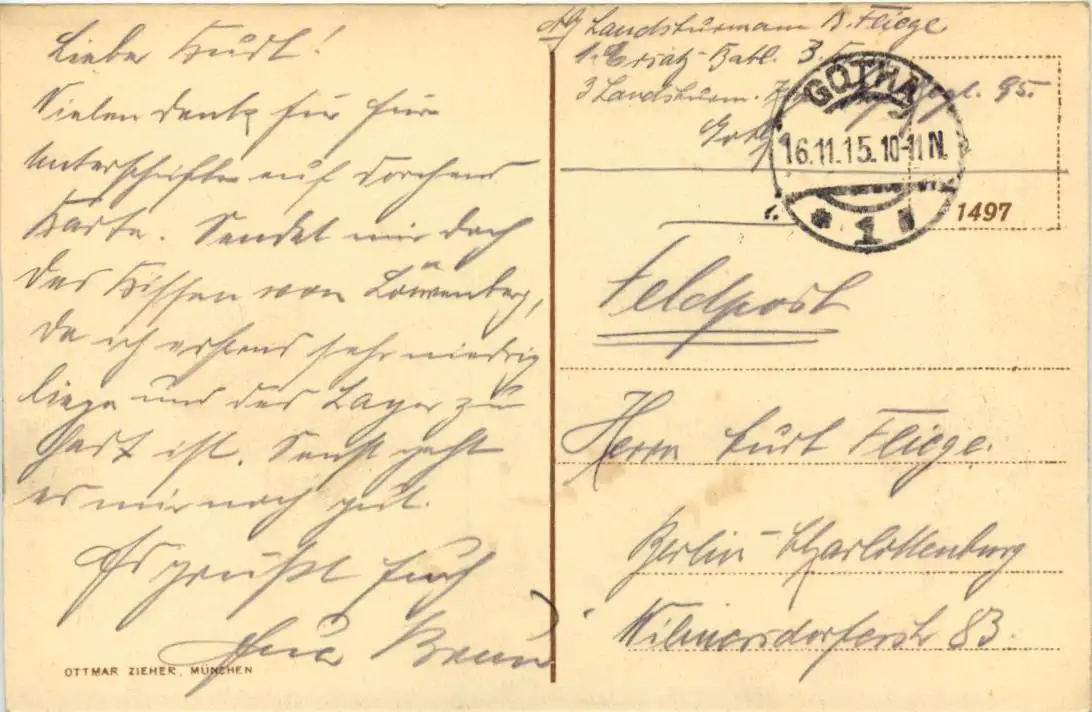 Lieber Kurt!
Vielen Dank für Eure
Unterschriften auf
Karte. Sendet mir doch
das Kissen von Löwenberg,
da ich erstens sehr niedrig
liege und das Lager zu
hart ist. Sonst geht
es mir noch gut.
Es grüßt Euch
Euer
OTTMAR ZIEHER, MÜNCHEN
Landsturmann B. Fliege
1. Ersatz-Batl.
3 Landsturm. 95.
GOTHA
16.11.15.10-11N.
* 1
1497
Feldpost
Herrn Curt Fliege.
Berlin-Charlottenburg
Wilmersdorferstr 83.